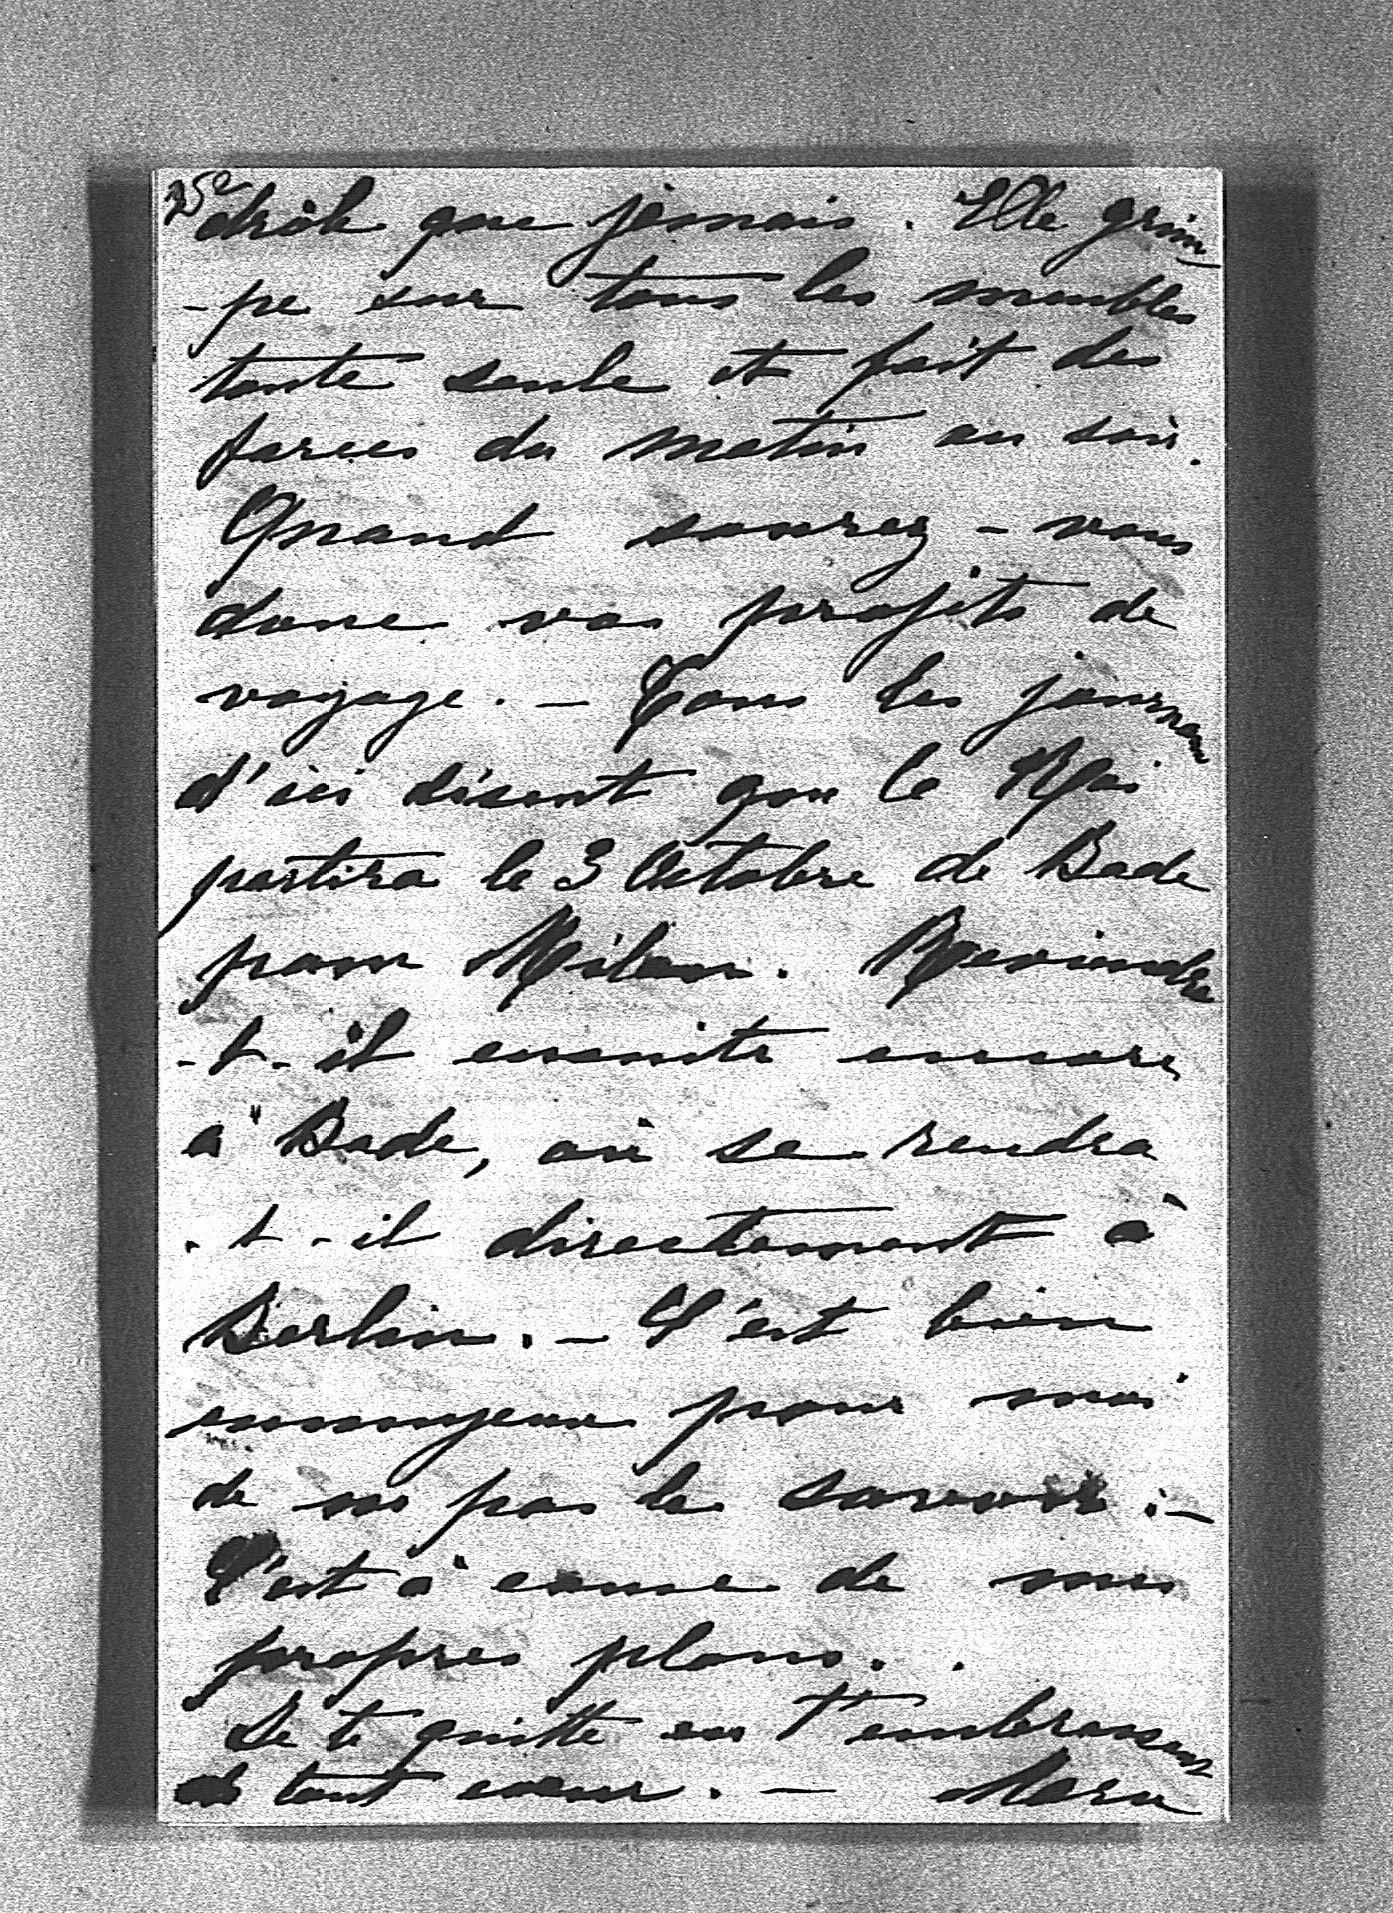 drôle que jamais. Elle grim
-pe sur tous les meubles
toute seule et fait des
farces du matin au soir.
Quand saurez-vous
donc vos projets de
voyage. — Tous les journaux
d'ici disent que le Roi
partira le 3 Octobre de Bade
pour Milan. Reviendra
-t-il ensuite encore
à Bade, où se rendra
-t-il directement à
Berlin. — C'est bien
ennuyeux pour moi
de ne pas le savoir. —
C'est à cause de mes
propres plans.
Je te quitte en t'embrassant
de tout cœur. —